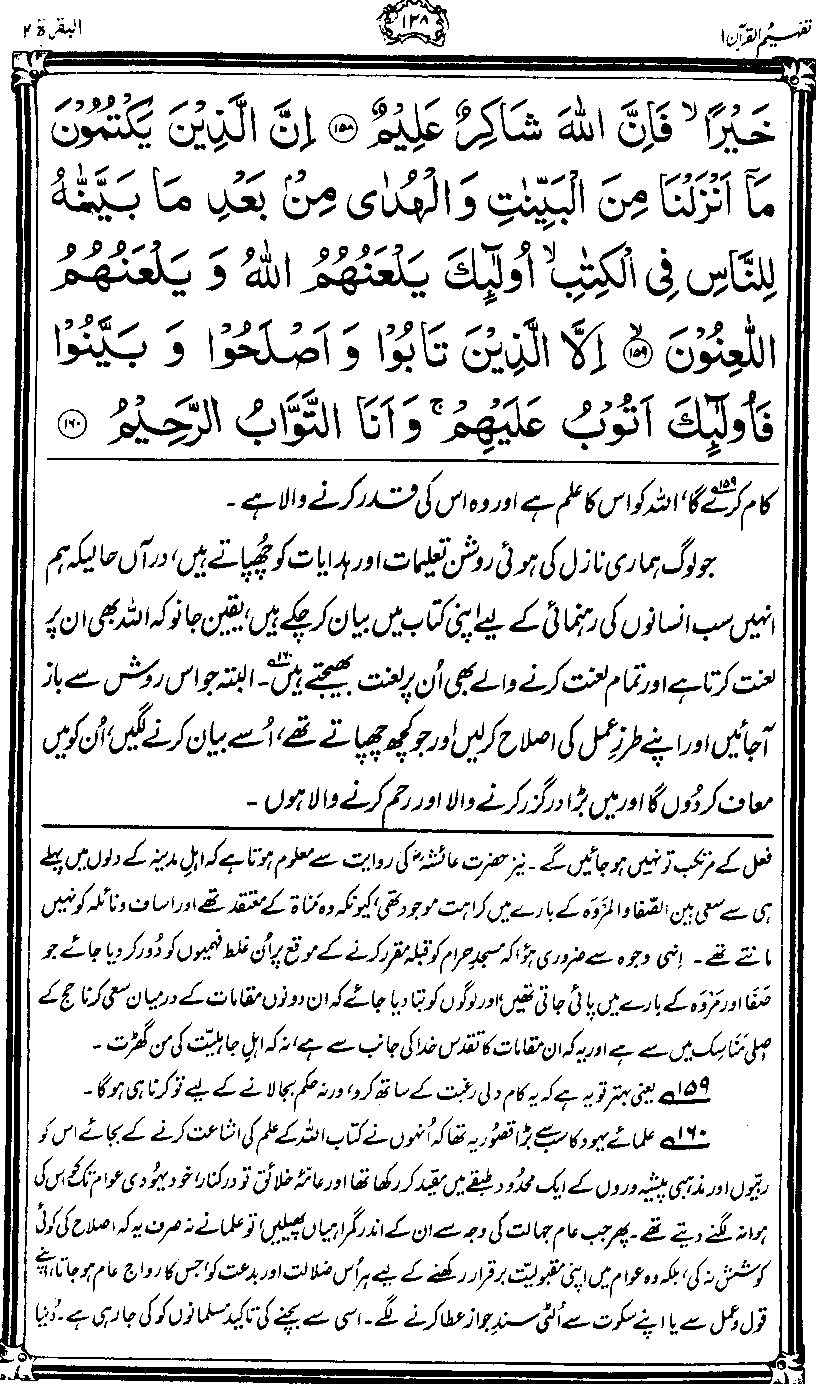 تفہیم القرآن ۱
۱۲۸
البقرۃ ۲
خَيْرًا ۙ فَاِنَّ اللّٰهَ شَاكِرٌ عَلِيْمٌ ۝۱۵۸ اِنَّ الَّذِيْنَ يَكْتُمُوْنَ
مَآ اَنْزَلْنَا مِنَ الْبَيِّنٰتِ وَالْهُدٰى مِنْۢ بَعْدِ مَا بَيَّنّٰهُ
لِلنَّاسِ فِى الْكِتٰبِ ۙ اُولٰٓئِكَ يَلْعَنُهُمُ اللّٰهُ وَ يَلْعَنُهُمُ
اللّٰعِنُوْنَ ۝۱۵۹ ۙ اِلَّا الَّذِيْنَ تَابُوْا وَ اَصْلَحُوْا وَ بَيَّنُوْا
فَاُولٰٓئِكَ اَتُوْبُ عَلَيْهِمْ ۚ وَ اَنَا التَّوَّابُ الرَّحِيْمُ ۝۱۶۰
کام کرے گا۱۵۹، اللہ کو اس کا علم ہے اور وہ اس کی قدر کرنے والا ہے۔
جو لوگ ہماری نازل کی ہوئی روشن تعلیمات اور ہدایات کو چُھپاتے ہیں، درآں حالیکہ ہم
انہیں سب انسانوں کی رہنمائی کے لیے اپنی کتاب میں بیان کر چکے ہیں، یقین جانو کہ اللہ بھی ان پر
لعنت کرتا ہے اور تمام لعنت کرنے والے بھی اُن پر لعنت بھیجتے ہیں۱۶۰۔ البتہ جو اس روش سے باز
آجائیں اور اپنے طرزِ عمل کی اصلاح کر لیں اور جو کچھ چھپاتے تھے، اُسے بیان کرنے لگیں، اُن کو میں
معاف کر دُوں گا اور میں بڑا درگزر کرنے والا اور رحم کرنے والا ہوں۔
فعل کے مرتکب تو نہیں ہو جائیں گے۔ نیز حضرت عائشہؓ کی روایت سے معلوم ہوتا ہے کہ اہلِ مدینہ کے دلوں میں پہلے
ہی سے سعی بین الصّفا والمَروَہ کے بارے میں کراہت موجود تھی، کیونکہ وہ مَناۃ کے معتقد تھے اور اساف و نائلہ کو نہیں
مانتے تھے۔ اِنہی وجوہ سے ضروری ہؤا کہ مسجدِ حرام کو قبلہ مقرر کرنے کے موقع پر اُن غلط فہمیوں کو دُور کر دیا جائے جو
صَفا اور مَروَہ کے بارے میں پائی جاتی تھیں، اور لوگوں کو بتا دیا جائے کہ ان دونوں مقامات کے درمیان سعی کرنا حج کے
اصلی مَناسِک میں سے ہے اور یہ کہ ان مقامات کا تقدس خدا کی جانب سے ہے، نہ کہ اہلِ جاہلیّت کی من گھڑت۔
۱۵۹ یعنی بہتر تو یہ ہے کہ یہ کام دلی رغبت کے ساتھ کرو، ورنہ حکم بجا لانے کے لیے تو کرنا ہی ہوگا۔
۱۶۰ علمائے یہود کا سب سے بڑا قصُور یہ تھا کہ اُنھوں نے کتاب اللہ کے علم کی اشاعت کرنے کے بجائے اس کو
ربّیوں اور مذہبی پیشہ وروں کے ایک محدُود طبقے میں مقید کر رکھا تھا اور عامۂ خلائق تو درکنار، خود یہُودی عوام تک کو اس کی
ہوا نہ لگنے دیتے تھے۔ پھر جب عام جہالت کی وجہ سے ان کے اندر گمراہیاں پھیلیں، تو علما نے نہ صرف یہ کہ اصلاح کی کوئی
کوشش نہ کی، بلکہ وہ عوام میں اپنی مقبولیت برقرار رکھنے کے لیے ہر اُس ضلالت اور بدعت کو، جس کا رواج عام ہو جاتا، اپنے
قول و عمل سے یا اپنے سکوت سے اُلٹی سندِ جواز عطا کرنے لگے۔ اسی سے بچنے کی تاکید مسلمانوں کو کی جا رہی ہے۔ دُنیا